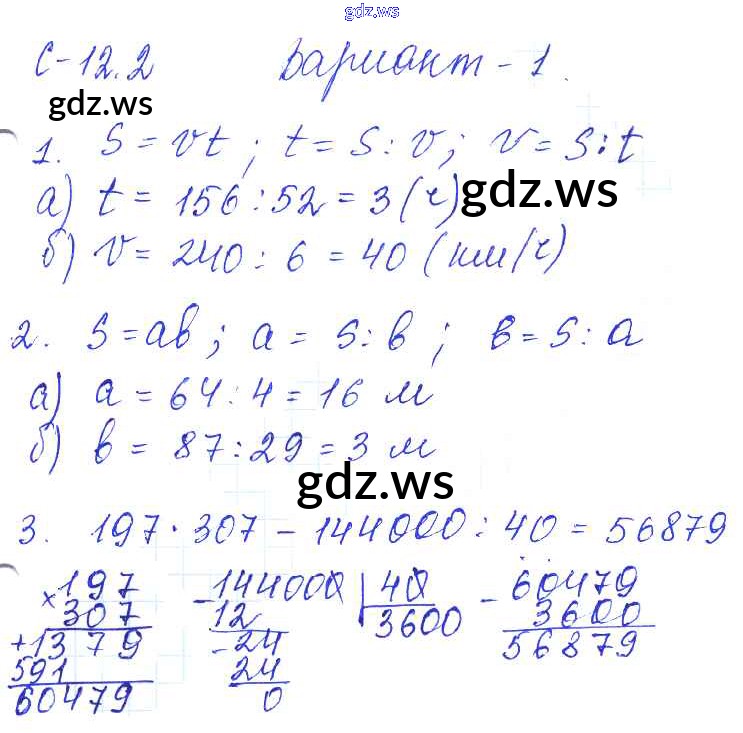 gdz.ws
С-12.2 Вариант-1.
gdz.ws
1. S = vt; t = S : v; v = S : t
а) t = 156 : 52 = 3 (ч)
gdz.ws
б) v = 240 : 6 = 40 (км/ч)
2. S = ab; a = S : b; b = S : a
а) a = 64 : 4 = 16 м
б) b = 87 : 29 = 3 м
gdz.ws
3. 197 · 307 - 144000 : 40 = 56879
× 197
307
+ 1379
591
60479
- 144000 | 40
12 3600
- 24
24
0
- 60479
3600
56879
gdz.ws